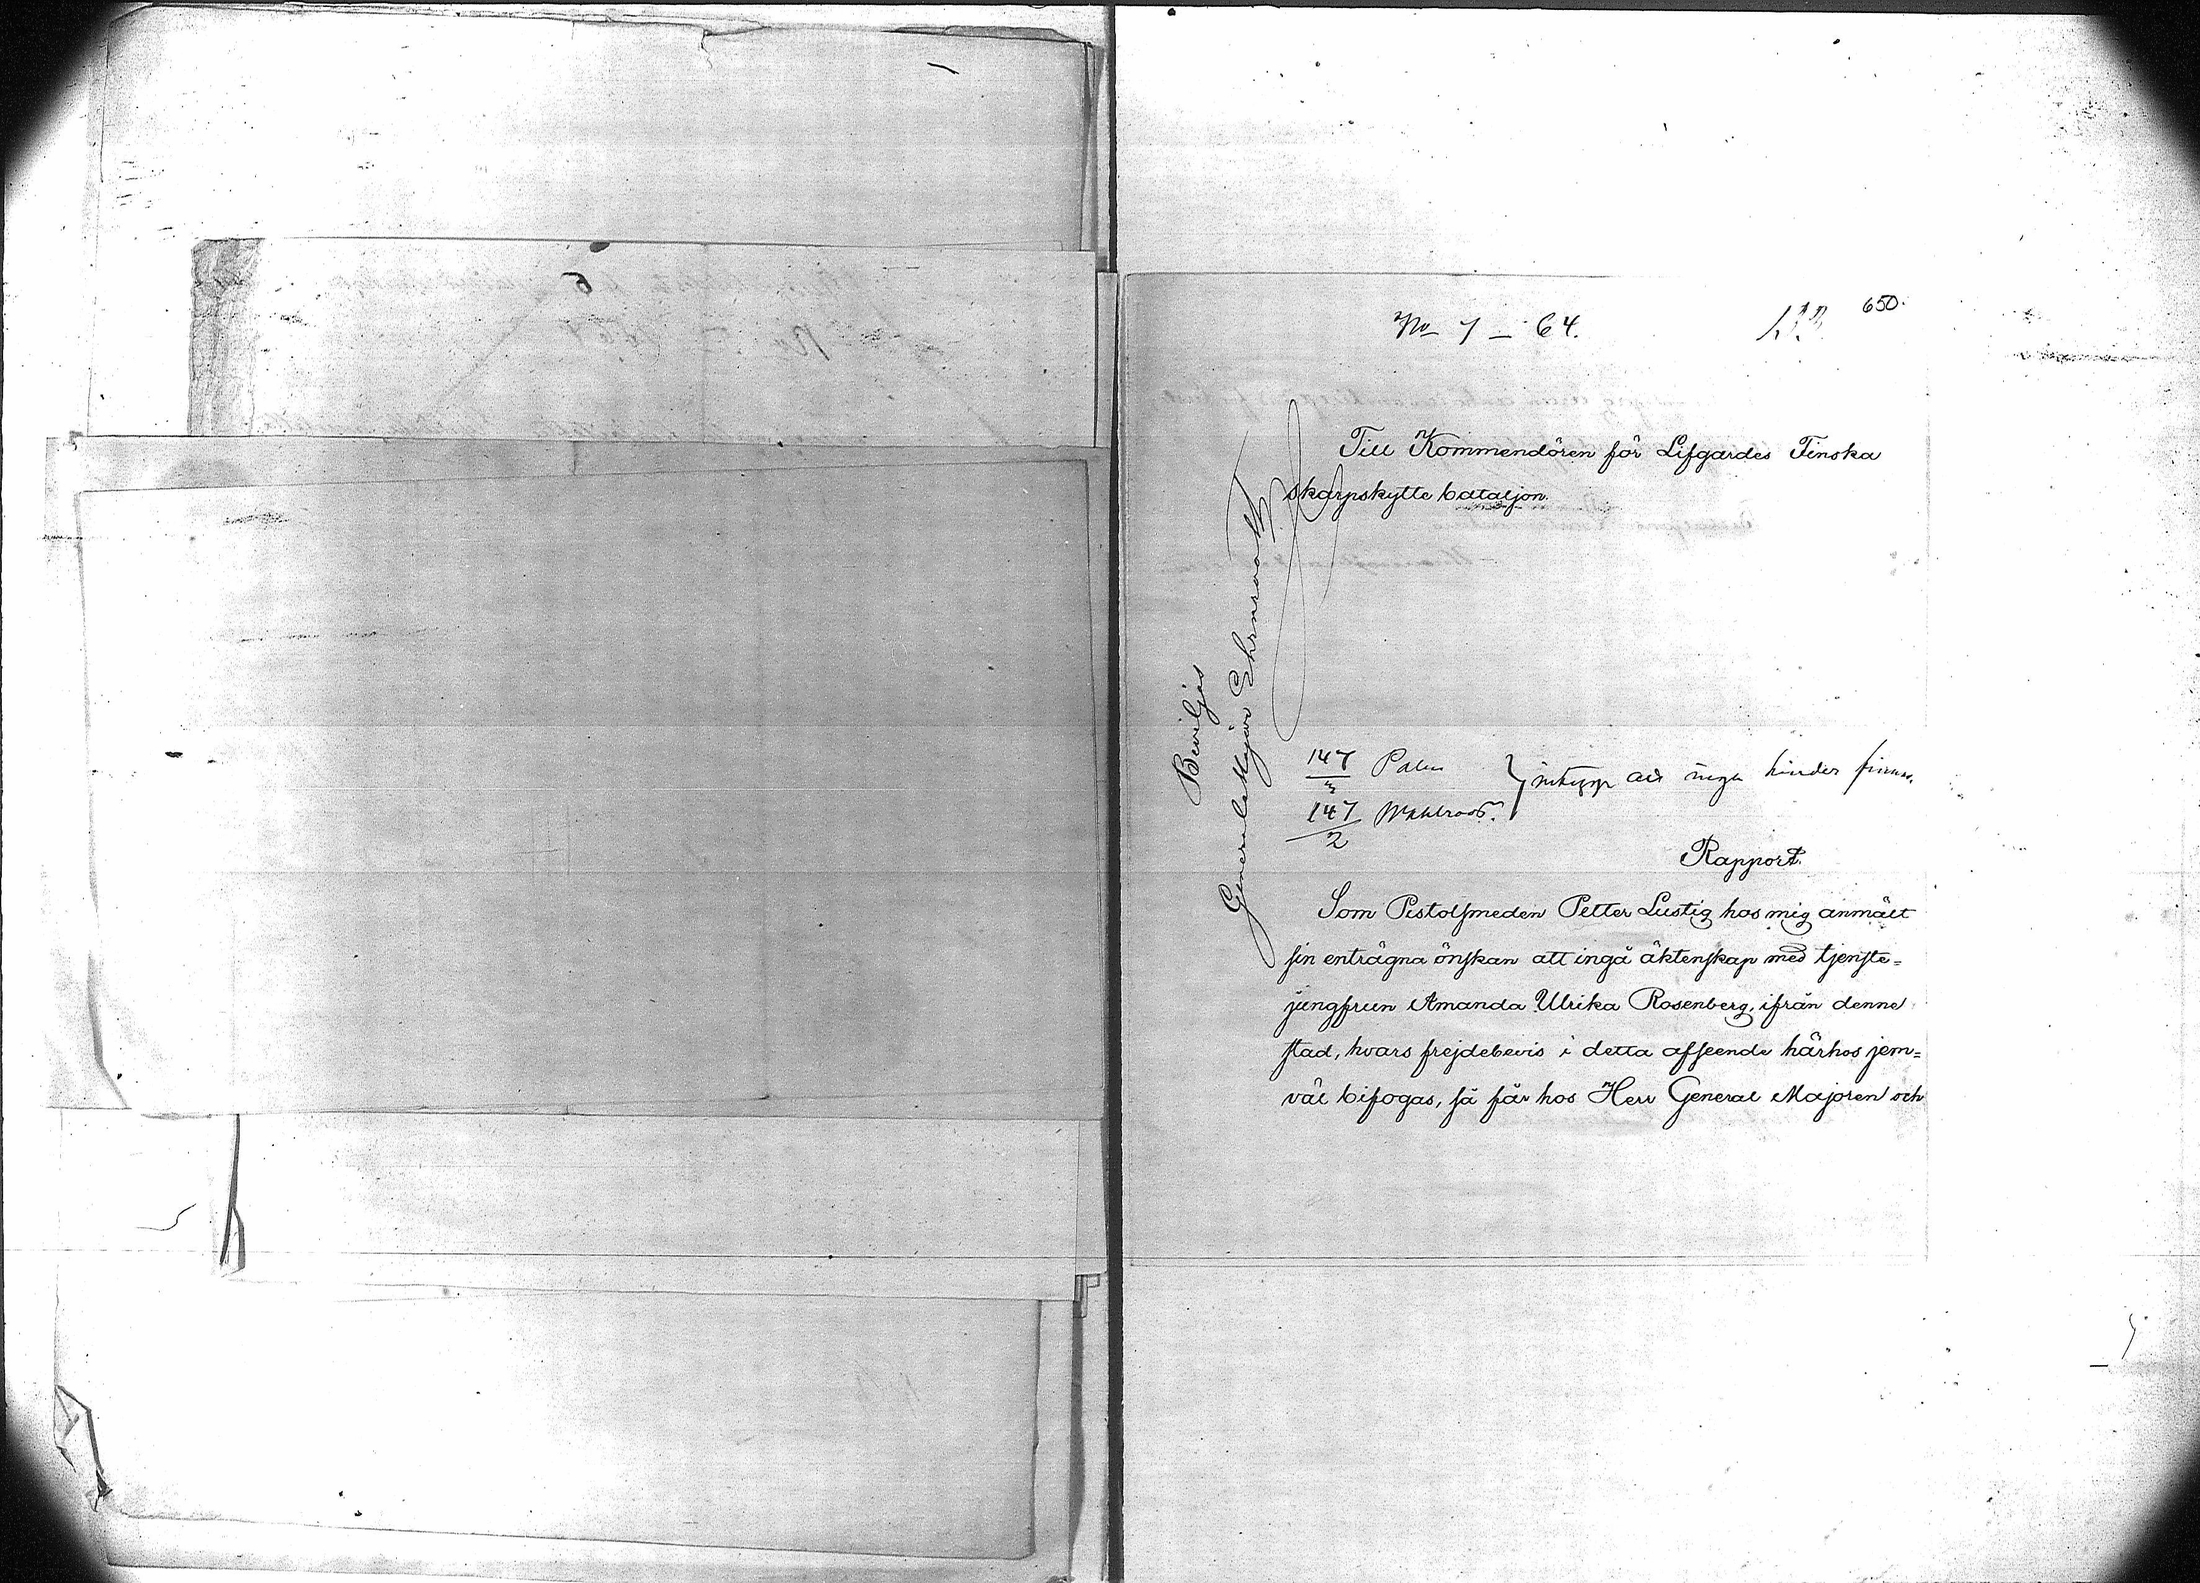 No 7 – 64.
650.
Till Kommendören för Lifgardes Finska
skarpskytte bataljon.
Beviljas
General Major Ehrnrooth
147 Palm
147 Wahlroos.
2
att inga hinder finnas.
Rapport.
Som Pistolsmeden Petter Lustig hos mig anmält
sin enträgna önskan att ingå äktenskap med tjenste=
jungfrun Amanda Ulrika Rosenberg, ifrån denne
stad, hvars frejdebevis i detta afseende härhos jem=
väl bifogas, så får hos Herr General Majoren och